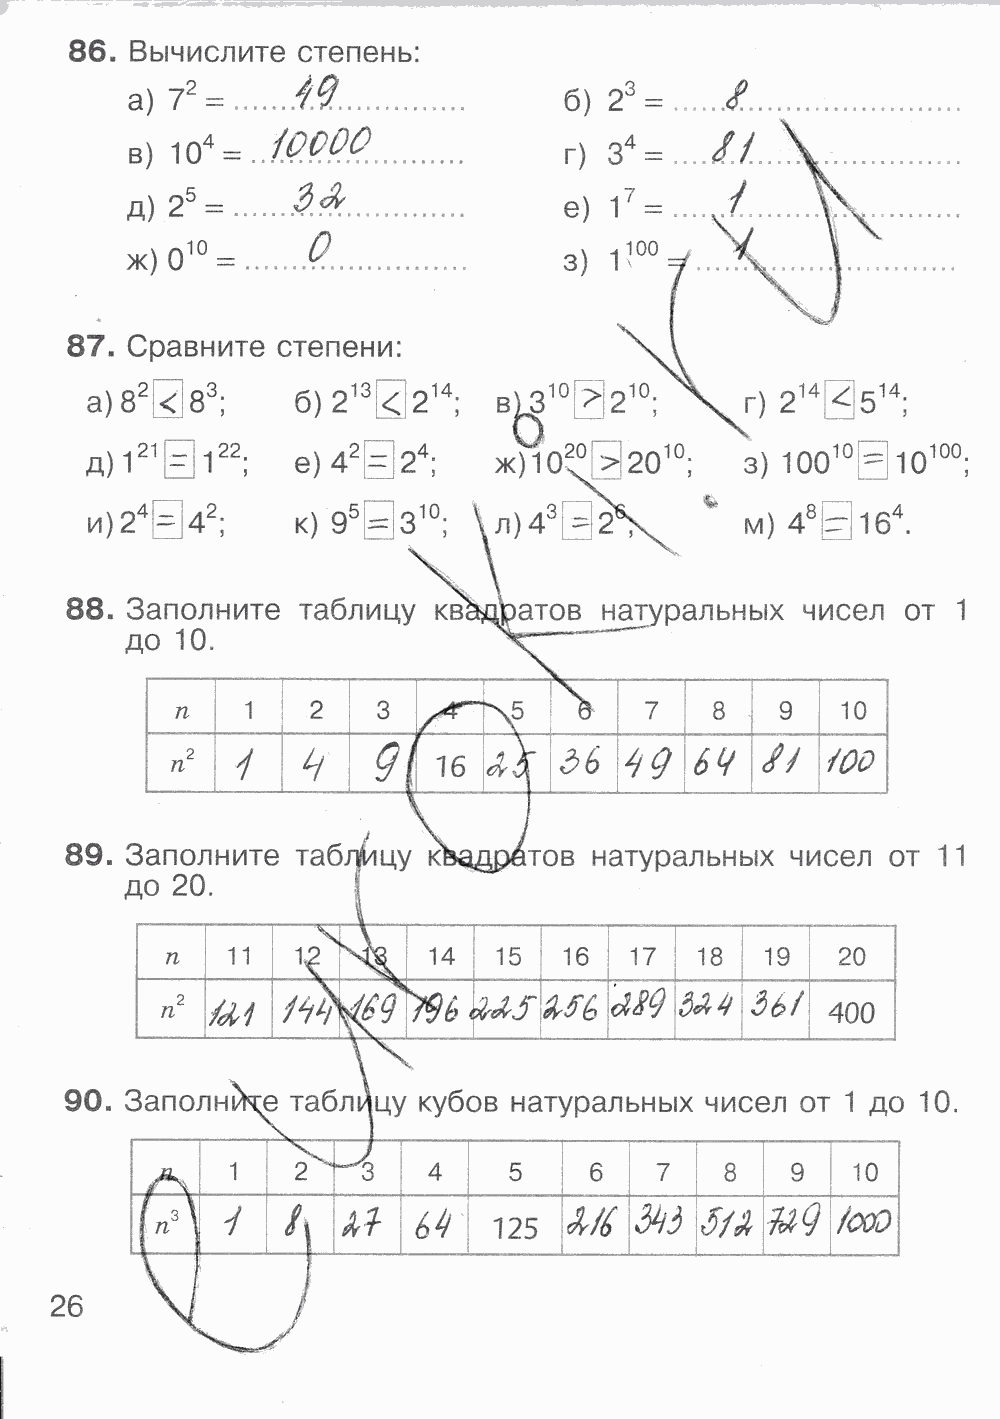 86. Вычислите степень:
а) 7² = 49 б) 2³ = 8
в) 10⁴ = 10000 г) 3⁴ = 81
д) 2⁵ = 32 е) 1⁷ = 1
ж) 0¹⁰ = 0 з) 1¹⁰⁰ = 1
87. Сравните степени:
а) 8² < 8³; б) 2¹³ < 2¹⁴; в) 3¹⁰ > 2¹⁰; г) 2¹⁴ < 5¹⁴;
д) 1²¹ = 1²²; е) 4² = 2⁴; ж) 10²⁰ > 20¹⁰; з) 100¹⁰ = 10¹⁰⁰;
и) 2⁴ = 4²; к) 9⁵ = 3¹⁰; л) 4³ = 2⁶; м) 4⁸ = 16⁴.
88. Заполните таблицу квадратов натуральных чисел от 1
до 10.
n 1 2 3 4 5 6 7 8 9 10
n² 1 4 9 16 25 36 49 64 81 100
89. Заполните таблицу квадратов натуральных чисел от 11
до 20.
n 11 12 13 14 15 16 17 18 19 20
n² 121 144 169 196 225 256 289 324 361 400
90. Заполните таблицу кубов натуральных чисел от 1 до 10.
n 1 2 3 4 5 6 7 8 9 10
n³ 1 8 27 64 125 216 343 512 729 1000
26